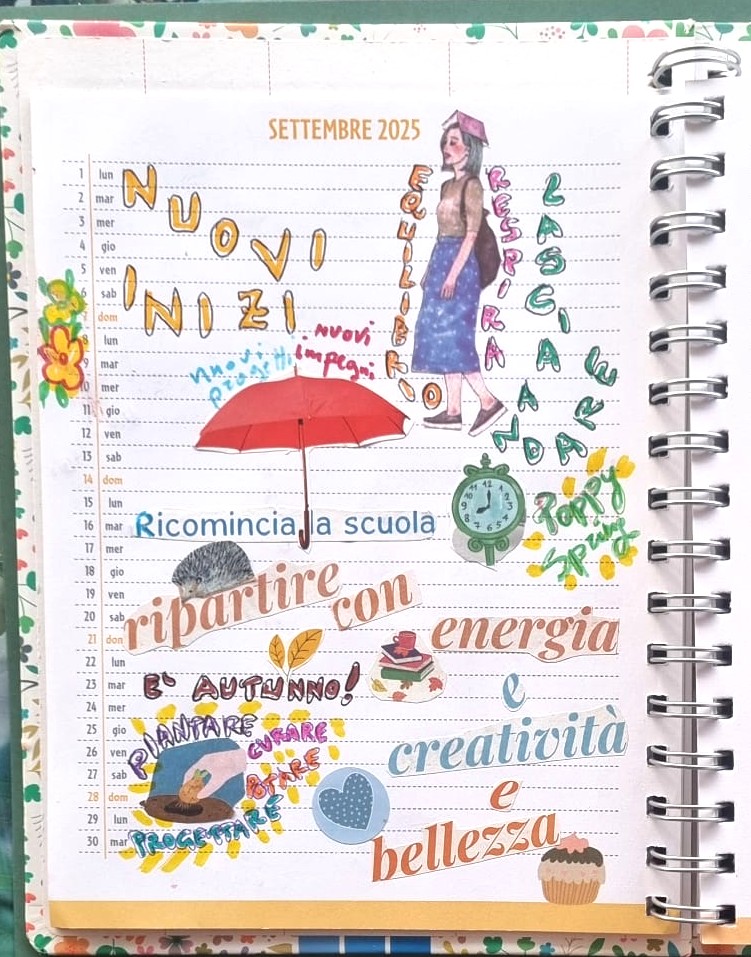 SETTEMBRE 2025
1 lun
2 mar
3 mer
4 gio
5 ven
6 sab
7 dom
8 lun
9 mar
10 mer
11 gio
12 ven
13 sab
14 dom
15 lun
16 mar
17 mer
18 gio
19 ven
20 sab
21 dom
22 lun
23 mar
24 mer
25 gio
26 ven
27 sab
28 dom
29 lun
30 mar
NUOVI
INIZI
EQUILIBRIO
RESPIRA
LASCIA
ANDARE
nuovi
progetti
nuovi
impegni
12 1 2 3 4 5 6 7 8 9 10 11
Poppy
Spring
Ricomincia la scuola
ripartire
con
energia
E' AUTUNNO!
e
creatività
e
bellezza
PIANTARE
CURARE
POTARE
PROGETTARE